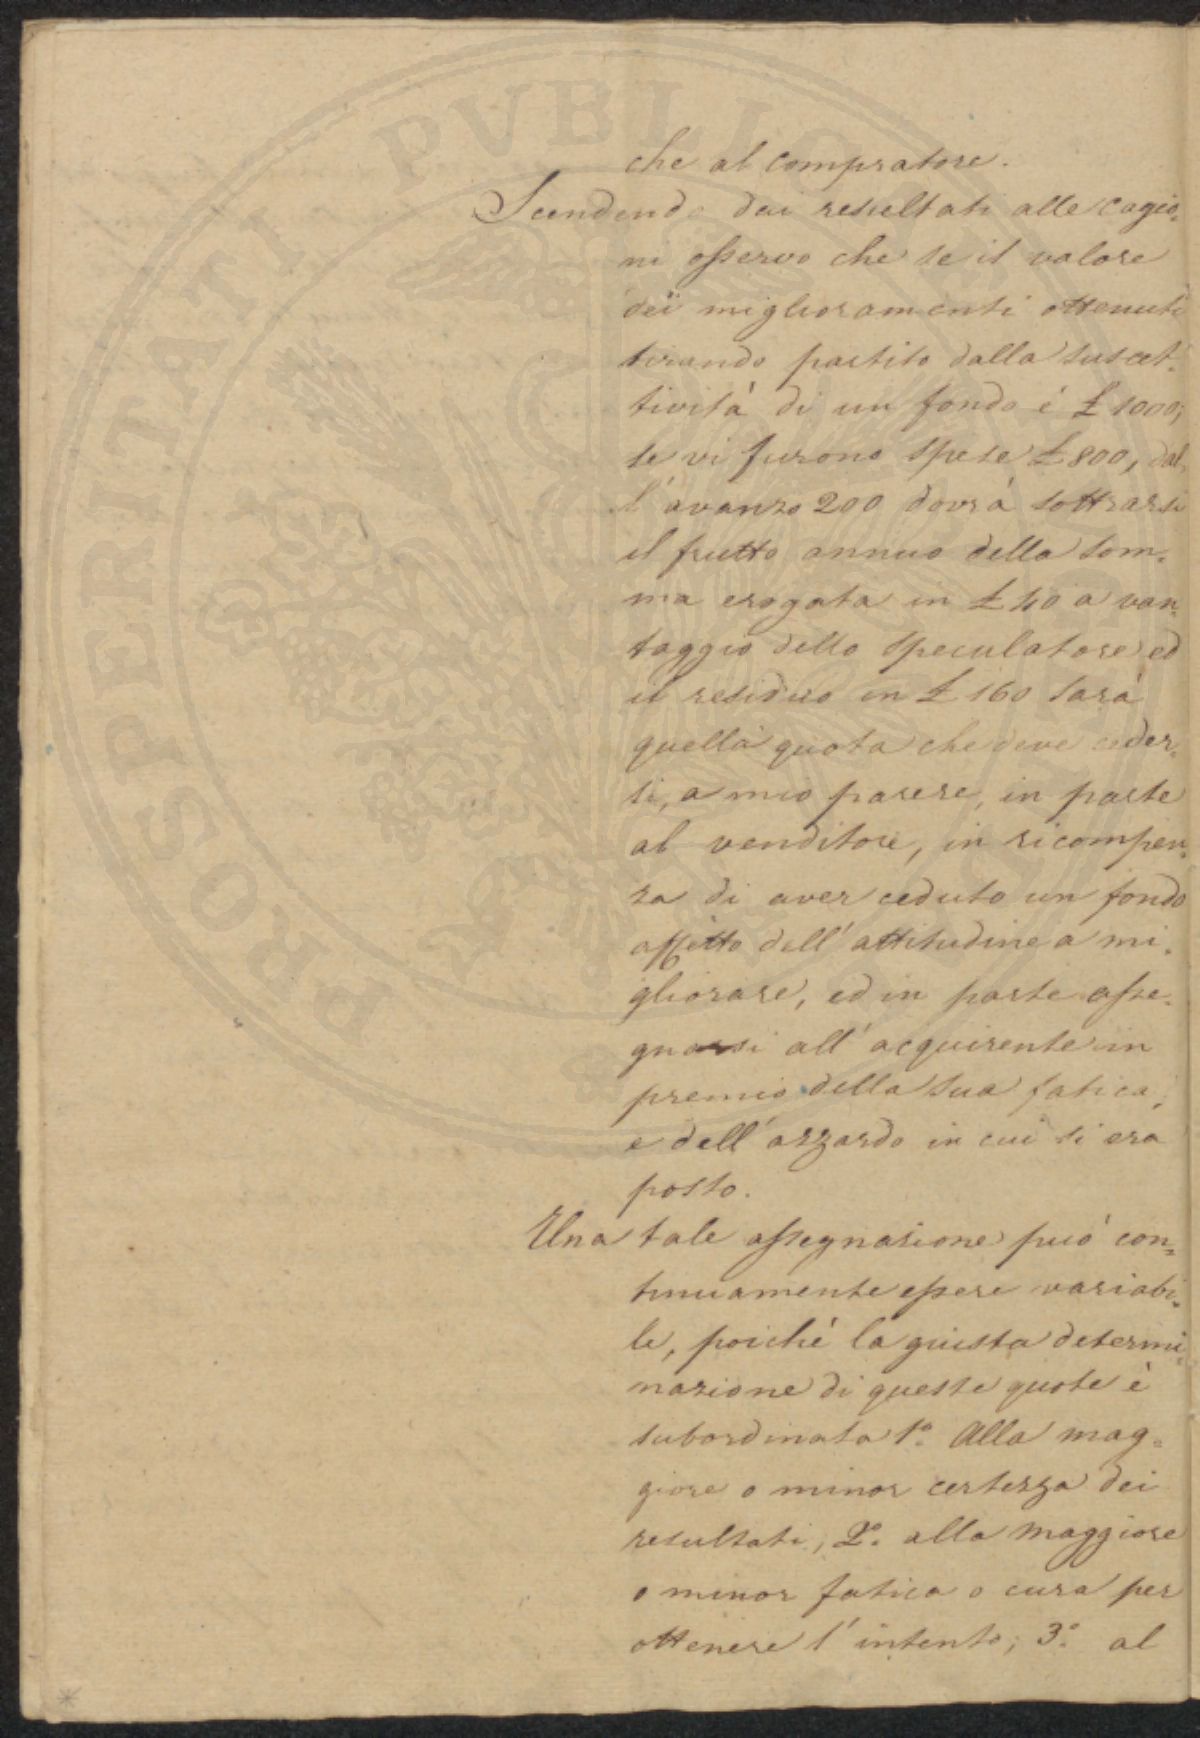 che al compratore.
Scendendo dai resultati alle cagio=
ni osservo che se il valore
dei miglioramenti ottenuti
tirando partito dalla suscet=
tività di un fondo è £ 1000,
se vi furono spese £ 800, dal=
l'avanzo 200 dovrà sottrarsi
il frutto annuo della som=
ma erogata in £ 40 a van=
taggio dello speculatore ed
il residuo in £ 160 sarà
quella quota che deve ceder=
si, a mio parere, in parte
al venditore, in ricompen=
za di aver ceduto un fondo
affetto dell'attitudine a mi=
gliorare, ed in parte asse=
gnarsi all'acquirente in
premio della sua fatica,
e dell'azzardo in cui si era
posto.
Una tale assegnazione può con=
tinuamente essere variabi=
le, poichè la giusta determi=
nazione di queste quote è
subordinata 1º. Alla mag=
giore o minor certezza dei
resultati, 2º. alla maggiore
o minor fatica o cura per
ottenere l'intento; 3º. al
PROSPERITATI PVBLICAE